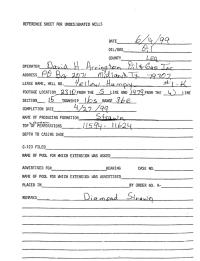 REFERENCE SHEET FOR UNDESIGNATED WELLS
DATE 6/4/99
OIL/GAS Oil
COUNTY Lea
OPERATOR David H Arrington Oil & Gas Inc
ADDRESS PO Box 2071 Midland Tx 79702
LEASE NAME, WELL NO. Yellow Humpy #1-K
FOOTAGE LOCATION 2310 FROM THE S LINE AND 1479 FROM THE W LINE
SECTION 15 TOWNSHIP 16s RANGE 36E
COMPLETION DATE 4/27/99
NAME OF PRODUCING FORMATION Strawn
TOP OF PERFORATIONS 11594-11624
DEPTH TO CASING SHOE
C-123 FILED
NAME OF POOL FOR WHICH EXTENSION WAS ASKED
ADVERTISED FOR HEARING CASE NO.
NAME OF POOL FOR WHICH EXTENSION WAS ADVERTISED
PLACED IN BY ORDER NO. R-
REMARKS Diamond Strawn